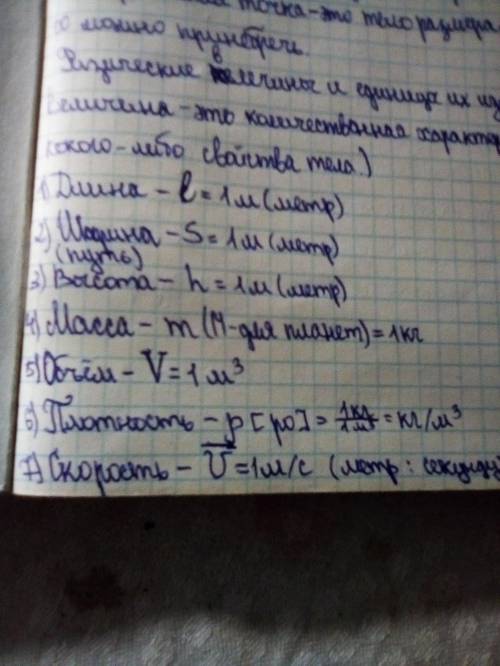 точка-это тело размера
можно пренебречь.
Физические величины и единицы их из
Величина - это количественная характ
какого-либо свойства тела.)
1) Длина - l = 1м (метр)
2) Ширина - S = 1м (метр)
(путь)
3) Высота - h = 1м (метр)
4) Масса - m (М-для планет) = 1кг
5) Объём - V = 1 м³
6) Плотность - p [ро] = 1кг/1м³ = кг/м³
7) Скорость - V = 1м/с (метр : секунду